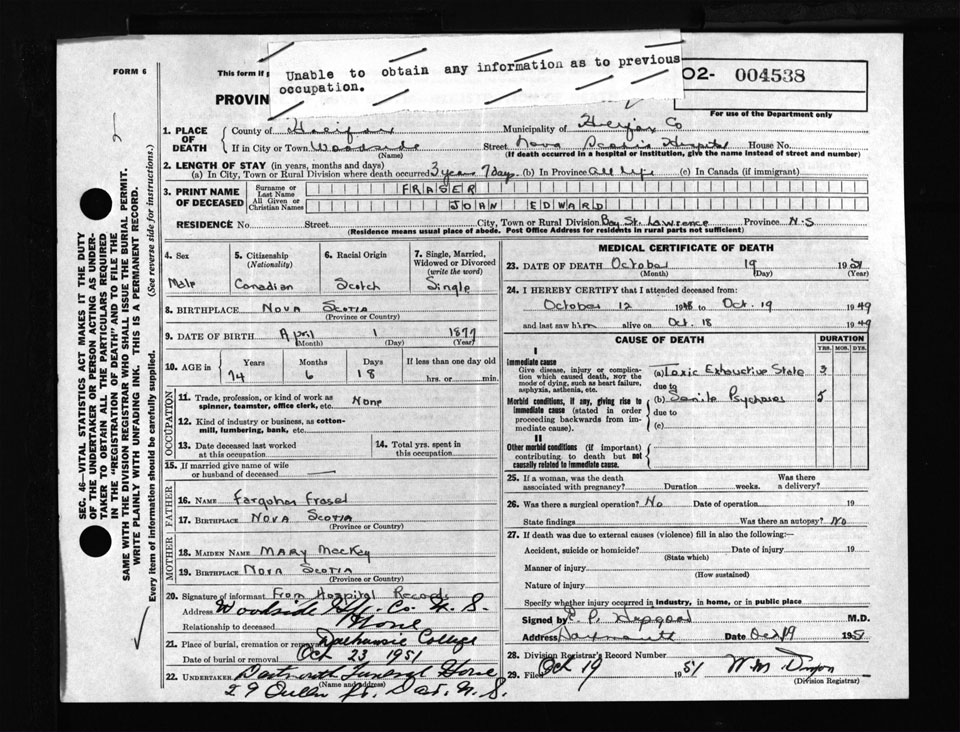 FORM 6
This form if p
Unable to obtain any information as to previous
occupation.
02- 004538
PROVIN
For use of the Department only
SEC. 46—VITAL STATISTICS ACT MAKES IT THE DUTY
OF THE UNDERTAKER OR PERSON ACTING AS UNDER-
TAKER TO OBTAIN ALL THE PARTICULARS REQUIRED
IN THE "REGISTRATION OF DEATH" AND TO FILE THE
SAME WITH THE DIVISION REGISTRAR WHO SHALL ISSUE THE BURIAL PERMIT.
WRITE PLAINLY WITH UNFADING INK. THIS IS A PERMANENT RECORD.
Every item of information should be carefully supplied. (See reverse side for instructions.)
1. PLACE OF DEATH County of Halifax Municipality of Halifax Co
If in City or Town Woodside Street Nova Scotia Hospital House No.
(Name) (If death occurred in a hospital or institution, give the name instead of street and number)
2. LENGTH OF STAY (in years, months and days)
(a) In City, Town or Rural Division where death occurred 3 years 7 days (b) In Province all life (c) In Canada (if immigrant)
3. PRINT NAME OF DECEASED Surname or Last Name FRASER
All Given or Christian Names EDWARD
RESIDENCE No. Street City, Town or Rural Division Bay St. Lawrence Province N.S
(Residence means usual place of abode. Post Office Address for residents in rural parts not sufficient)
4. Sex Male
5. Citizenship (Nationality) Canadian
6. Racial Origin Scotch
7. Single, Married, Widowed or Divorced (write the word) Single
8. BIRTHPLACE NOVA SCOTIA
(Province or Country)
9. DATE OF BIRTH April 1 1877
(Month) (Day) (Year)
10. AGE in Years 74 Months 6 Days 18 If less than one day old hrs. or min.
OCCUPATION
11. Trade, profession, or kind of work as spinner, teamster, office clerk, etc. None
12. Kind of industry or business, as cotton-mill, lumbering, bank, etc.
13. Date deceased last worked at this occupation
14. Total yrs. spent in this occupation
15. If married give name of wife or husband of deceased
FATHER
16. NAME Farquhar
17. BIRTHPLACE NOVA SCOTIA
(Province or Country)
MOTHER
18. MAIDEN NAME MARY
19. BIRTHPLACE NOVA SCOTIA
(Province or Country)
20. Signature of informant From Hospital Records
Address Woodside Hfx. Co. N.S.
Relationship to deceased None
21. Place of burial, cremation or removal Dalhousie College
Date of burial or removal Oct 23 1951
22. UNDERTAKER Dartmouth Funeral Home
(Name and address)
29 Queen St. Dart. N.S.
MEDICAL CERTIFICATE OF DEATH
23. DATE OF DEATH October 19 1951
(Month) (Day) (Year)
24. I HEREBY CERTIFY that I attended deceased from:
October 12 1948 to Oct. 19 1949
and last saw him alive on Oct. 18 1949
CAUSE OF DEATH DURATION
YRS. MOS. DYS.
I
Immediate cause
Give disease, injury or complication which caused death, NOT the mode of dying, such as heart failure, asphyxia, asthenia, etc.
(a) Toxic Exhaustive State 3
due to
Morbid conditions, if any, giving rise to immediate cause (stated in order proceeding backwards from immediate cause).
(b) Senile Psychoses 5
due to
(c)
II
Other morbid conditions (if important) contributing to death but not causally related to immediate cause.
25. If a woman, was the death associated with pregnancy? Duration weeks. Was there a delivery?
26. Was there a surgical operation? No Date of operation 19
State findings Was there an autopsy? No
27. If death was due to external causes (violence) fill in also the following:—
Accident, suicide or homicide? Date of injury 19
(State which)
Manner of injury
(How sustained)
Nature of injury
Specify whether injury occurred in industry, in home, or in public place
Signed by M.D.
Address Dartmouth Date Oct 19 1951
28. Division Registrar's Record Number
29. Filed Oct 19 1951 W M
(Division Registrar)